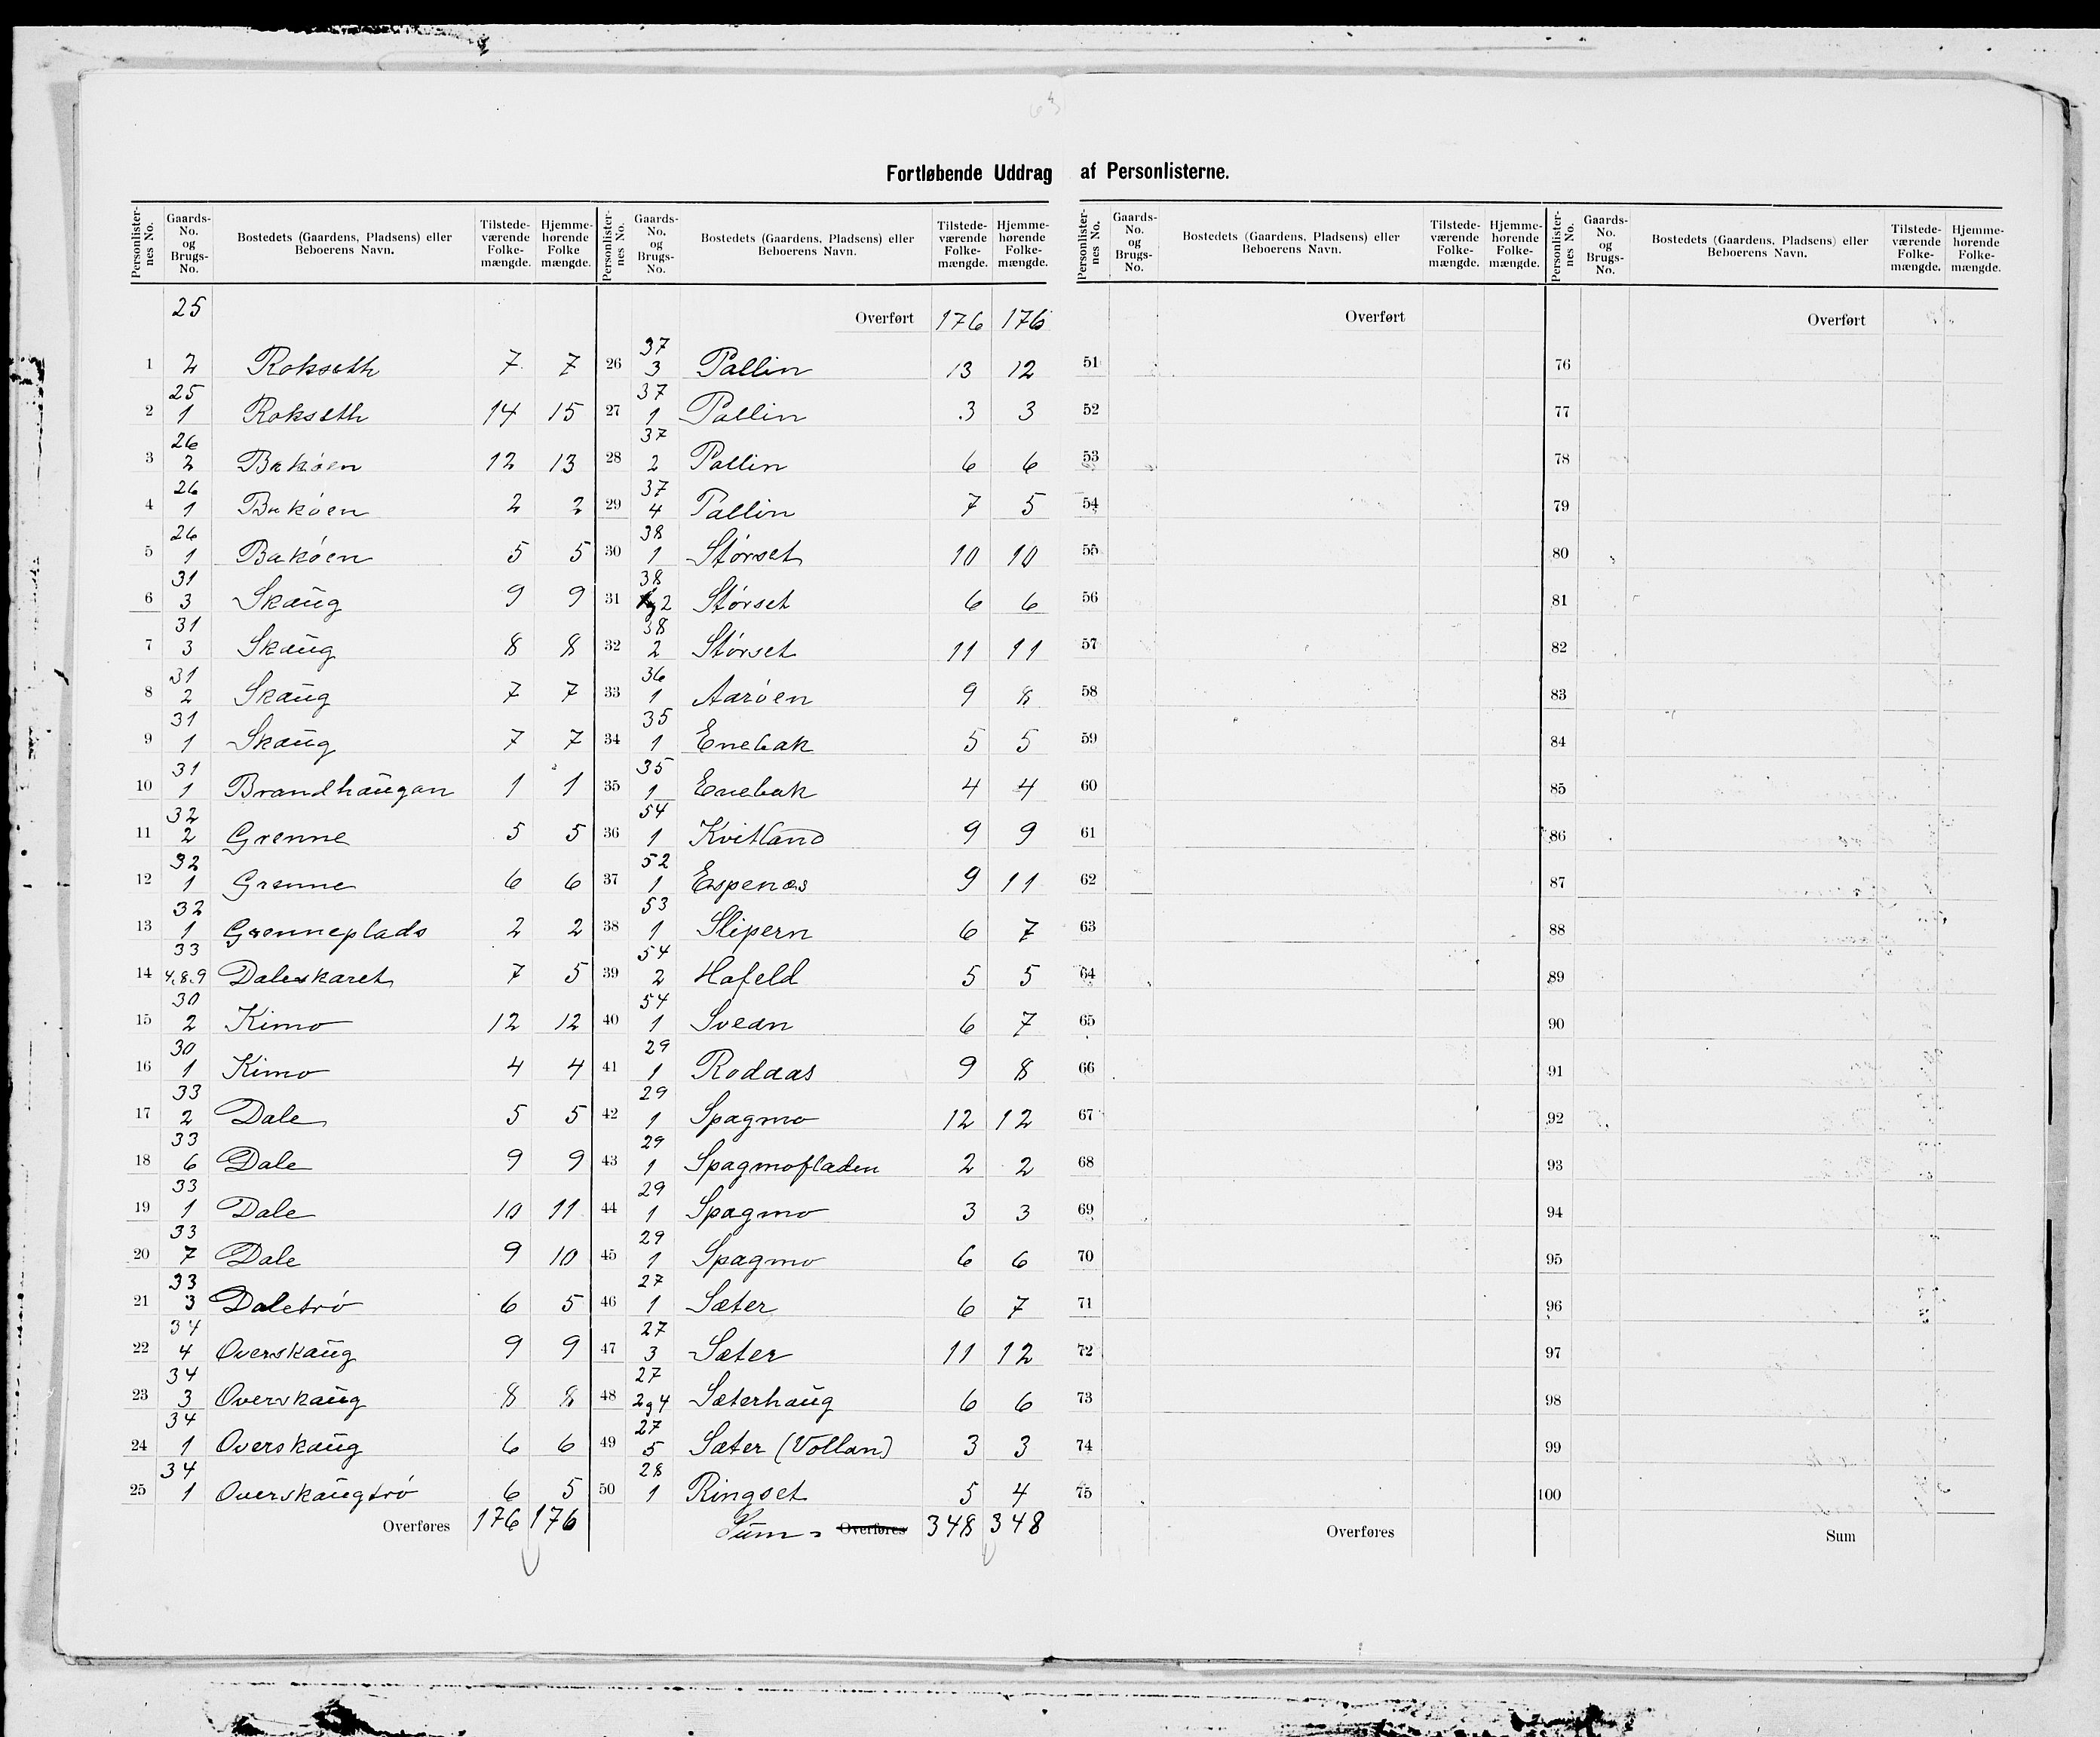 Fortløbende Uddrag af Personlisterne.
Personlister-nes No. | Gaards-No. og Brugs-No. | Bostedets (Gaardens, Pladsens) eller Beboerens Navn. | Tilstede-værende Folke-mængde. | Hjemme-hørende Folke mængde. | Personlister-nes No. | Gaards-No. og Brugs-No. | Bostedets (Gaardens, Pladsens) eller Beboerens Navn. | Tilstede-værende Folke-mængde. | Hjemme-hørende Folke-mængde.
1 | 25 2 | Rokseth | 7 | 7
2 | 25 1 | Rokseth | 14 | 15
3 | 26 2 | Bakøen | 12 | 13
4 | 26 1 | Bakøen | 2 | 2
5 | 26 1 | Bakøen | 5 | 5
6 | 31 3 | Skaug | 9 | 9
7 | 31 3 | Skaug | 8 | 8
8 | 31 2 | Skaug | 7 | 7
9 | 31 1 | Skaug | 7 | 7
10 | 31 1 | Brandhaugan | 1 | 1
11 | 32 2 | Grenne | 5 | 5
12 | 32 1 | Grenne | 6 | 6
13 | 32 1 | Grenneplads | 2 | 2
14 | 33 4,8,9 | Daleskaret | 7 | 5
15 | 30 2 | Kimo | 12 | 12
16 | 30 1 | Kimo | 4 | 4
17 | 33 2 | Dale | 5 | 5
18 | 33 6 | Dale | 9 | 9
19 | 33 1 | Dale | 10 | 11
20 | 33 7 | Dale | 9 | 10
21 | 33 3 | Daletrø | 6 | 5
22 | 34 4 | Overskaug | 9 | 9
23 | 34 3 | Overskaug | 8 | 8
24 | 34 1 | Overskaug | 6 | 6
25 | 34 1 | Overskaugtrø | 6 | 5
Overføres | 176 | 176
Overført | 176 | 176
26 | 37 3 | Pallin | 13 | 12
27 | 37 1 | Pallin | 3 | 3
28 | 37 2 | Pallin | 6 | 6
29 | 37 4 | Pallin | 7 | 5
30 | 38 1 | Størset | 10 | 10
31 | 38 1 g 2 | Størset | 6 | 6
32 | 38 2 | Størset | 11 | 11
33 | 36 1 | Aarøen | 9 | 8
34 | 35 1 | Enebak | 5 | 5
35 | 35 1 | Enebak | 4 | 4
36 | 54 1 | Kvitland | 9 | 9
37 | 52 1 | Espenæs | 9 | 11
38 | 53 1 | Slipern | 6 | 7
39 | 54 2 | Hafeld | 5 | 5
40 | 54 1 | Svean | 6 | 7
41 | 29 1 | Rodaas | 9 | 8
42 | 29 1 | Spagmo | 12 | 12
43 | 29 1 | Spagmofladen | 2 | 2
44 | 29 1 | Spagmo | 3 | 3
45 | 29 1 | Spagmo | 6 | 6
46 | 27 1 | Sæter | 6 | 7
47 | 27 3 | Sæter | 11 | 12
48 | 27 2 g 4 | Sæterhaug | 6 | 6
49 | 27 5 | Sæter (Vollan) | 3 | 3
50 | 28 1 | Ringset | 5 | 4
Sum = Overføres | 348 | 348
Personlister-nes No. | Gaards-No. og Brugs-No. | Bostedets (Gaardens, Pladsens) eller Beboerens Navn. | Tilstede-værende Folke-mængde. | Hjemme-hørende Folke-mængde. | Personlister-nes No. | Gaards-No. og Brugs-No. | Bostedets (Gaardens, Pladsens) eller Beboerens Navn. | Tilstede-værende Folke-mængde. | Hjemme-hørende Folke-mængde.
Overført
51
52
53
54
55
56
57
58
59
60
61
62
63
64
65
66
67
68
69
70
71
72
73
74
75
Overføres
Overført
76
77
78
79
80
81
82
83
84
85
86
87
88
89
90
91
92
93
94
95
96
97
98
99
100
Sum